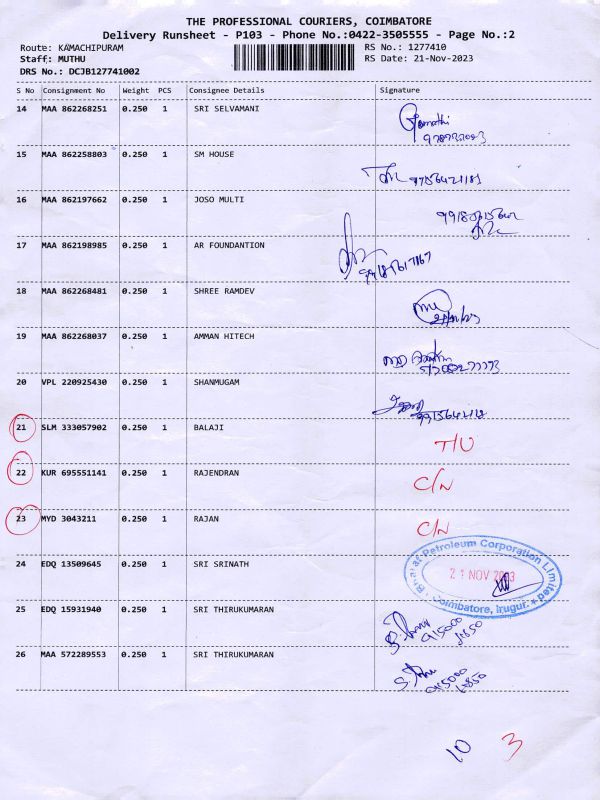 THE PROFESSIONAL COURIERS, COIMBATORE
Delivery Runsheet - P103 - Phone No.:0422-3505555 - Page No.:2
Route: KAMACHIPURAM RS No.: 1277410
Staff: MUTHU RS Date: 21-Nov-2023
DRS No.: DCJB127741002
S No Consignment No Weight PCS Consignee Details Signature
14 MAA 862268251 0.250 1 SRI SELVAMANI
15 MAA 862258803 0.250 1 SM HOUSE
16 MAA 862197662 0.250 1 JOSO MULTI
17 MAA 862198985 0.250 1 AR FOUNDANTION
18 MAA 862268481 0.250 1 SHREE RAMDEV
19 MAA 862268037 0.250 1 AMMAN HITECH
20 VPL 220925430 0.250 1 SHANMUGAM
21 SLM 333057902 0.250 1 BALAJI T/U
22 KUR 695551141 0.250 1 RAJENDRAN C/N
23 MYD 3043211 0.250 1 RAJAN C/N
24 EDQ 13509645 0.250 1 SRI SRINATH
Bharat Petroleum Corporation Limited
21 NOV
Coimbatore, Irugur.
25 EDQ 15931940 0.250 1 SRI THIRUKUMARAN
26 MAA 572289553 0.250 1 SRI THIRUKUMARAN
10 3